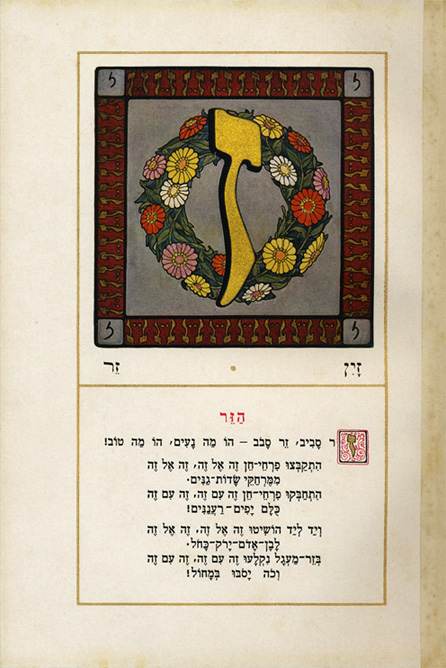 ז ז
ז
ז ז
זַיִן זֵר
הַזֵּר
זר סָבִיב, זֵר סָבֹב – הוֹ מַה נָּעִים, הוֹ מַה טוֹב!
הִתְקַבְּצוּ פִרְחֵי־חֵן זֶה אֶל זֶה, זֶה אֶל זֶה
מִמֶּרְחַקֵּי שָׂדוֹת־גַּנִּים.
הִתְחַבְּקוּ פִרְחֵי־חֵן זֶה עִם זֶה, זֶה עִם זֶה
כֻּלָּם יָפִים־רַעֲנַנִּים!
וְיַד לְיַד הוֹשִׁיטוּ זֶה אֶל זֶה, זֶה אֶל זֶה
לָבָן־אָדֹם־יָרֹק־כָּחֹל.
בְּזֵר־מַעְגָּל נִקְלְעוּ זֶה עִם זֶה, זֶה עִם זֶה
וְכֹה יָסֹבּוּ בְּמָחוֹל!